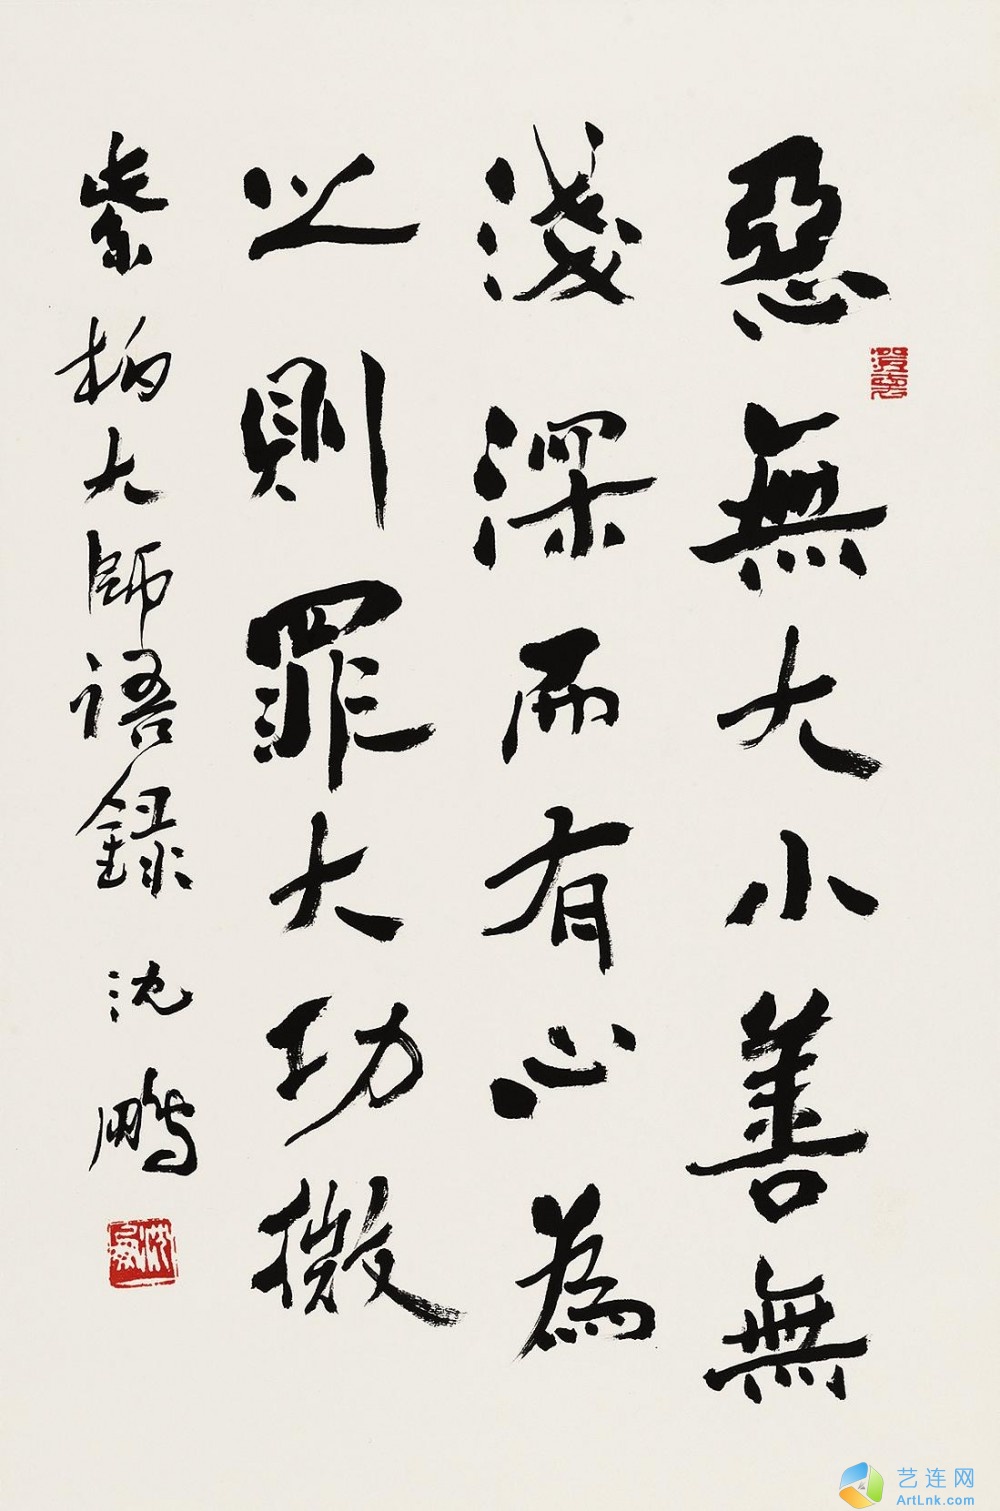 惡無大小善無
淺深而有心為
之則罪大功微
紫柏大師語録 沈鵬
艺连网
ArtLnk.com